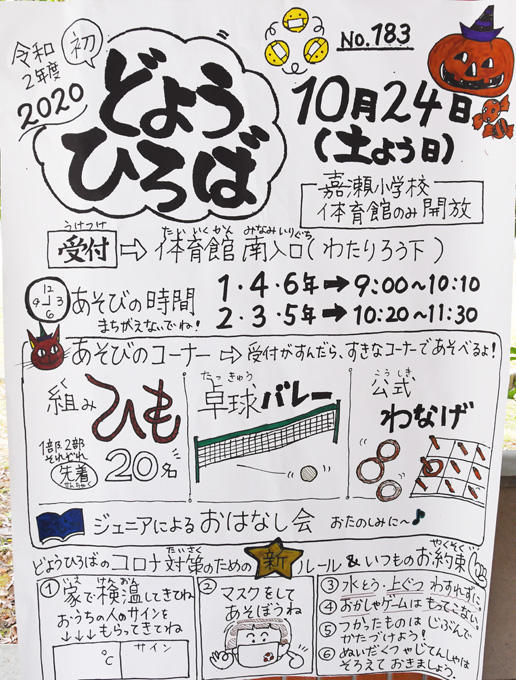 令和
2年度
2020
初
どよう
ひろば
No.183
10月24日
(土よう日)
嘉瀬小学校
体育館のみ開放
うけつけ
受付⇨
たいいくかん みなみいりぐち
体育館 南入口(わたりろう下)
12
9 3
6
あそびの時間
まちがえないでね!
1・4・6年➡9:00~10:10
2・3・5年➡10:20~11:30
あそびのコーナー⇨受付がすんだら、すきなコーナーであそべるよ!
組みひも
1部、2部
それぞれ
先着
せんちゃく
20名
たっきゅう
卓球バレー
こうしき
公式
わなげ
ジュニアによるおはなし会 おたのしみに~♪
どようひろばのコロナ対策のための新ルール&いつものお約束
たいさく
やくそく
① 家で検温してきてね
いえ けんおん
おうちの人のサインを
↓↓↓もらってきてね
℃
サイン
② マスクをして
あそぼうね
③ 水とう・上ぐつ わすれずに
④ おかしやゲームはもってこない
⑤ つかったものは じぶんで
かたづけよう!
⑥ ぬいだくつやじてんしゃは
そろえて おきましょう。